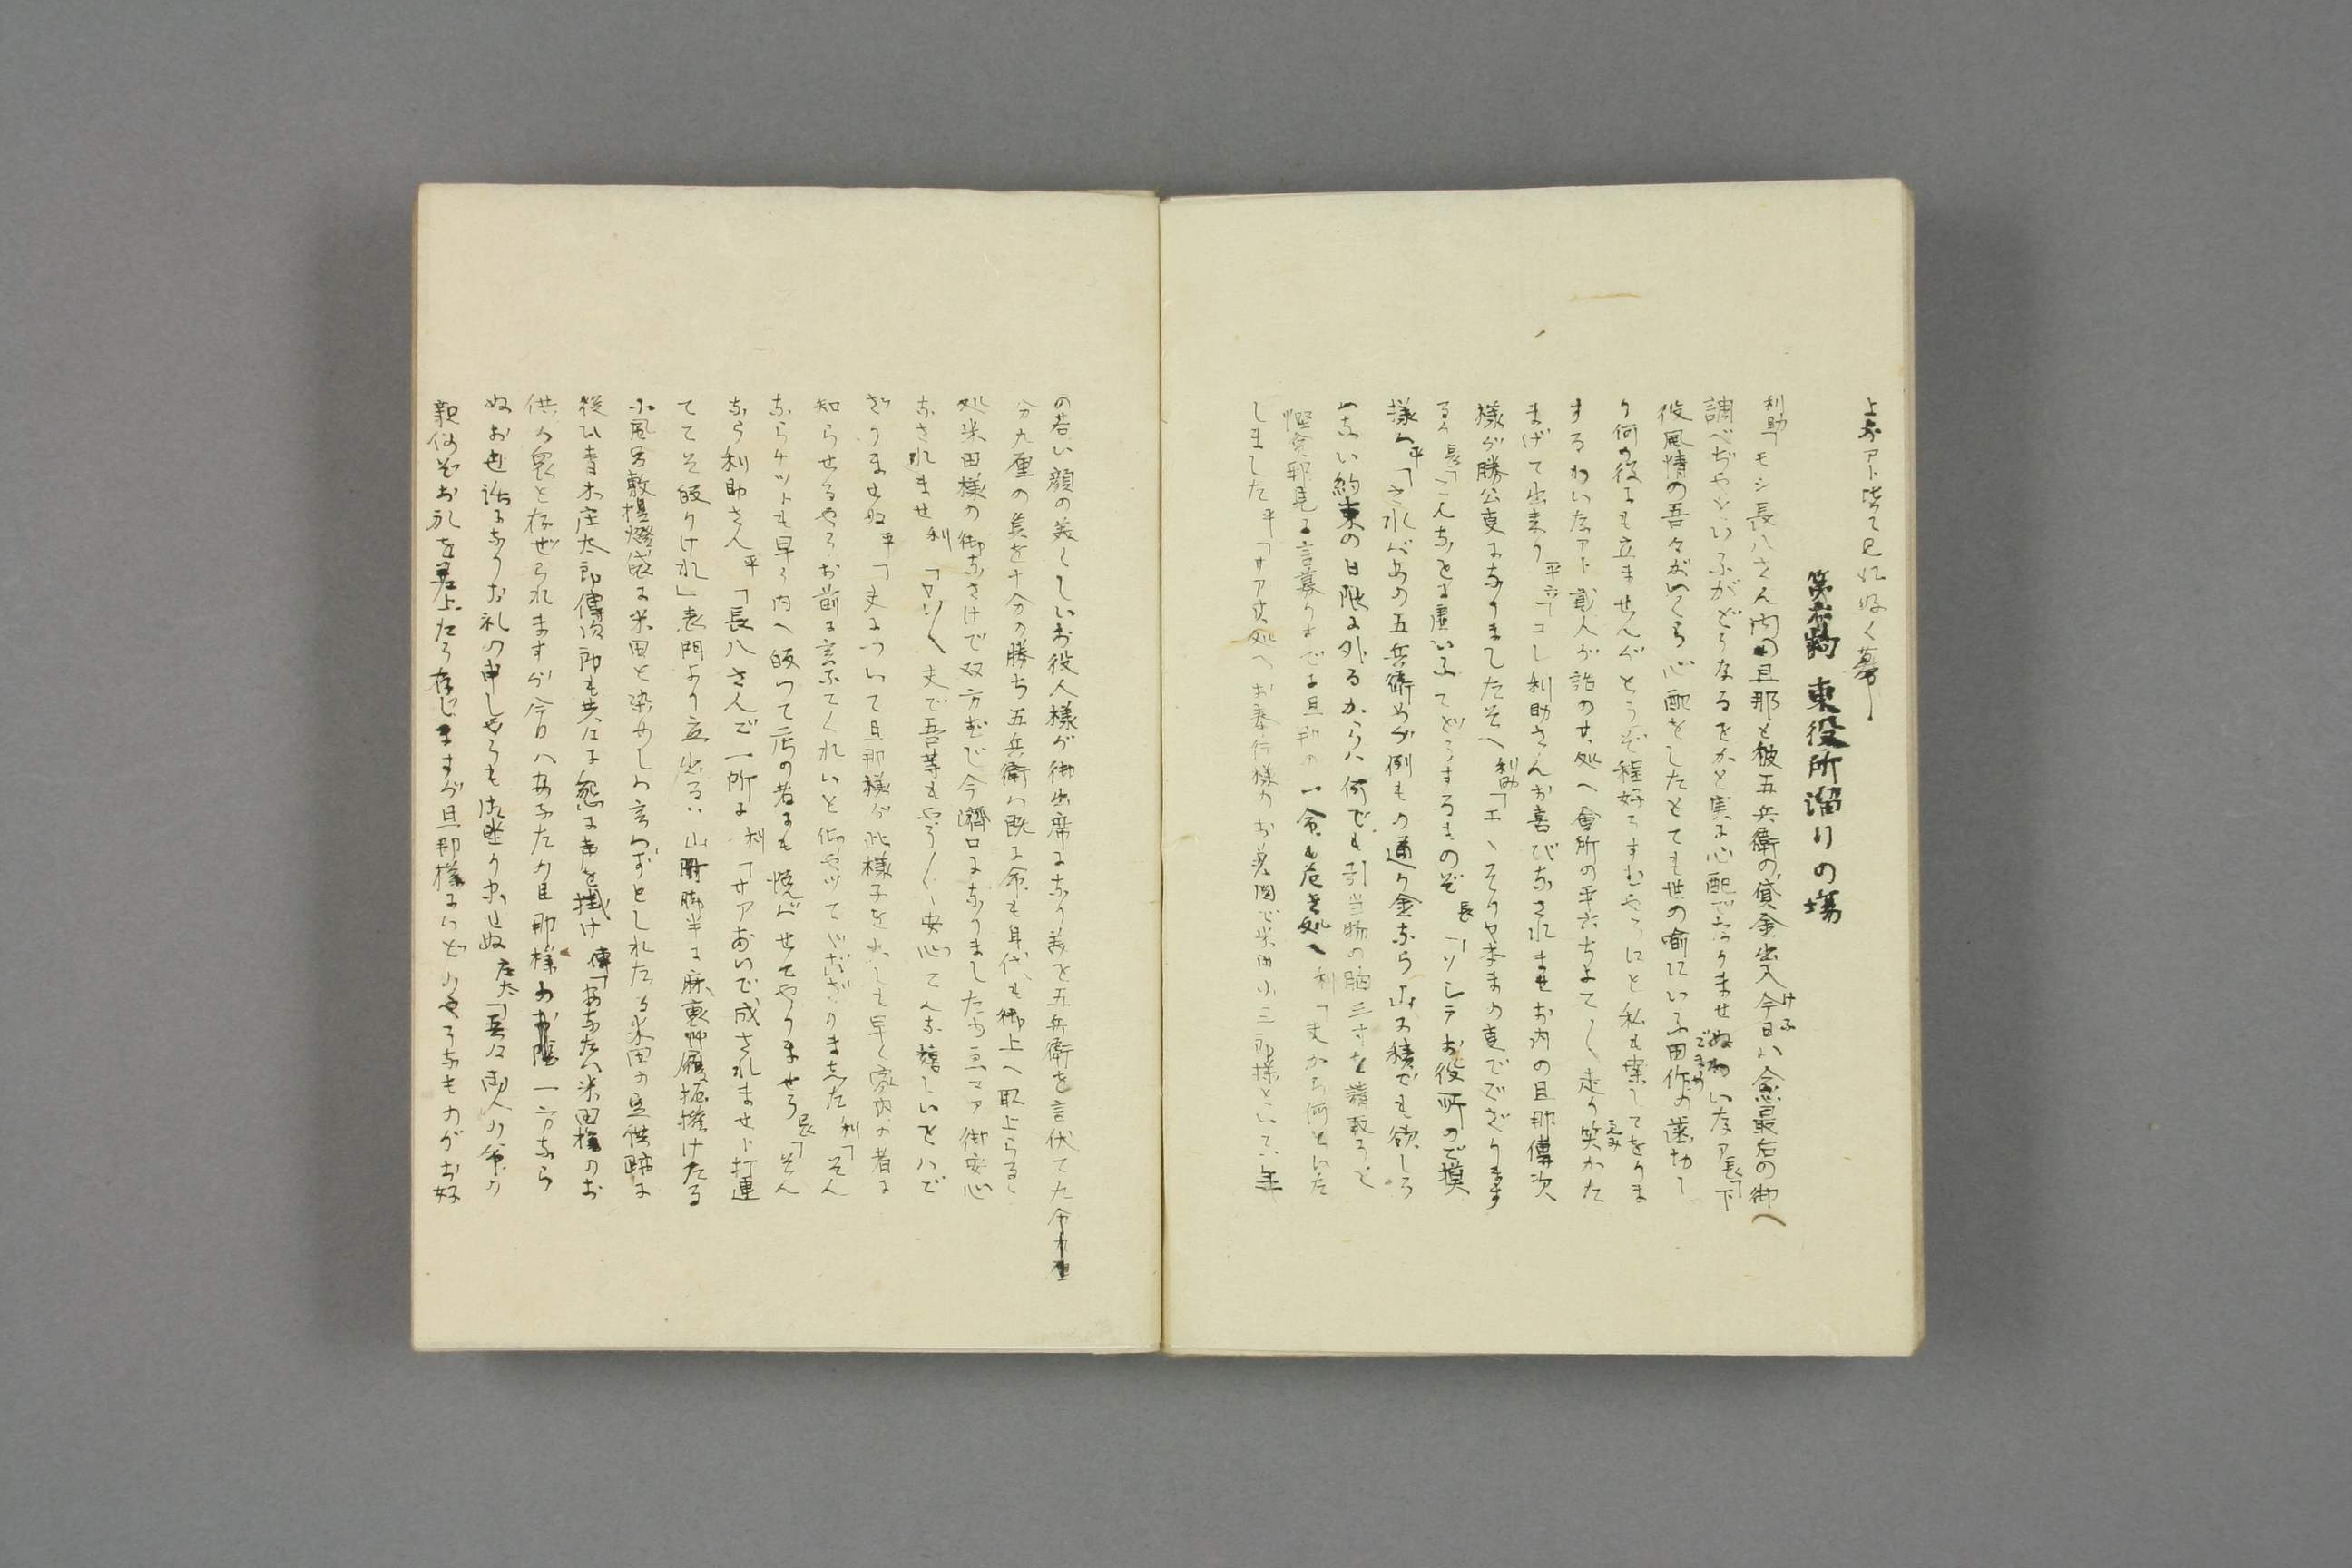 東役所溜りの場
利助「モシ長八さん内の旦那と彼五兵衛の貸金出入今日ハ愈最后の御
調べぢやといふがどうなるをかと実に心配でなりませぬわいなア 長「下
役風情の吾々がいくら心配をしたとても世の喩にいふ田作の
り何の役にも立ませんがどうぞ程好うすむやうにと私も案じてをりま
するわいなアト 両人が話の処へ会所の平六ちよて〳〵走り笑かた
まげて出来り 平六「コレ利助さんお喜びなされませお内の旦那傳次
様が勝公事になりましたぞへ 利助「エヽそりや本まの事でござります
るか 長「こんなとに虚いふてどうするものぞ 長「ソシテお役所ので模
様ハ 平「されバあの五兵衛めが例もの通り金なら山に積でも欲しう
ない約束の日限に外るからハ何でも引当物の脇三寸を請取うと
慳貪邪見に言募り 旦那の一命も危き処へ 利「夫から何といた
しました 平「サア其処へお奉行様のお 米田小三郎様といふ年
の若い顔の美くしいお役人様が御出席になり 五兵衛を言伏てた
分九厘の負を十分の勝ち五兵衛ハ既に命も身代も御上へ取上らるゝ
処米田様の御なさけで双方無で今済口になりました マア御安心
なされませ 利「ヤレ〳〵夫で吾等もやう〳〵安心 こんな嬉しいとハご
ざりませぬ 平「夫について旦那様が此様子をちしも早く家内の者に
知らせるやうお前に言ふてくれいと仰やツてゞござりました 利「そん
ならチツトも早う内へ皈つて店の者にも悦バせてやりませう 長「そん
なら利助さん 平「長八さんで一所に 利「サアおいで成されませト打連
てこそ皈りけれ」表門より立出るハ 山岡脚半に麻裏艸履振掛けたる
小風呂敷提燈袋に米田と染めしハ言わずとしれたる米田の足供跡に
後ひ青木庄太郎傳次郎も共々に 声を掛け 傳「あなたハ米田様のお
供の衆と存ぜられますが今日ハあなたの旦那様のお陰一方なら
ぬお世話になりお礼の申しやうも御座り升せぬ 庄太「吾々両人の命の
親何ぞお礼を差上たう存じますが旦那様にハどのやうなものがお好